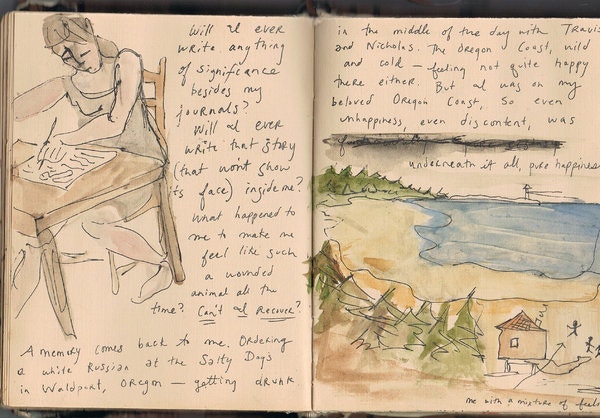 Will I ever
write anything
of significance
besides my
journals?
Will I ever
write that story
(that won't show
its face) inside me?
What happened to
me to make me
feel like such
a wounded
animal all the
time? Can't I Recover?
A memory comes back to me. Ordering
a white Russian at the Salty Dogs
in Waldport, Oregon — getting drunk
in the middle of the day with Travis
and Nicholas. The Oregon Coast, wild
and cold — feeling not quite happy
there either. But I was on my
beloved Oregon Coast, so even
unhappiness, even discontent, was
underneath it all, pure happiness
me with a mixture of feeli